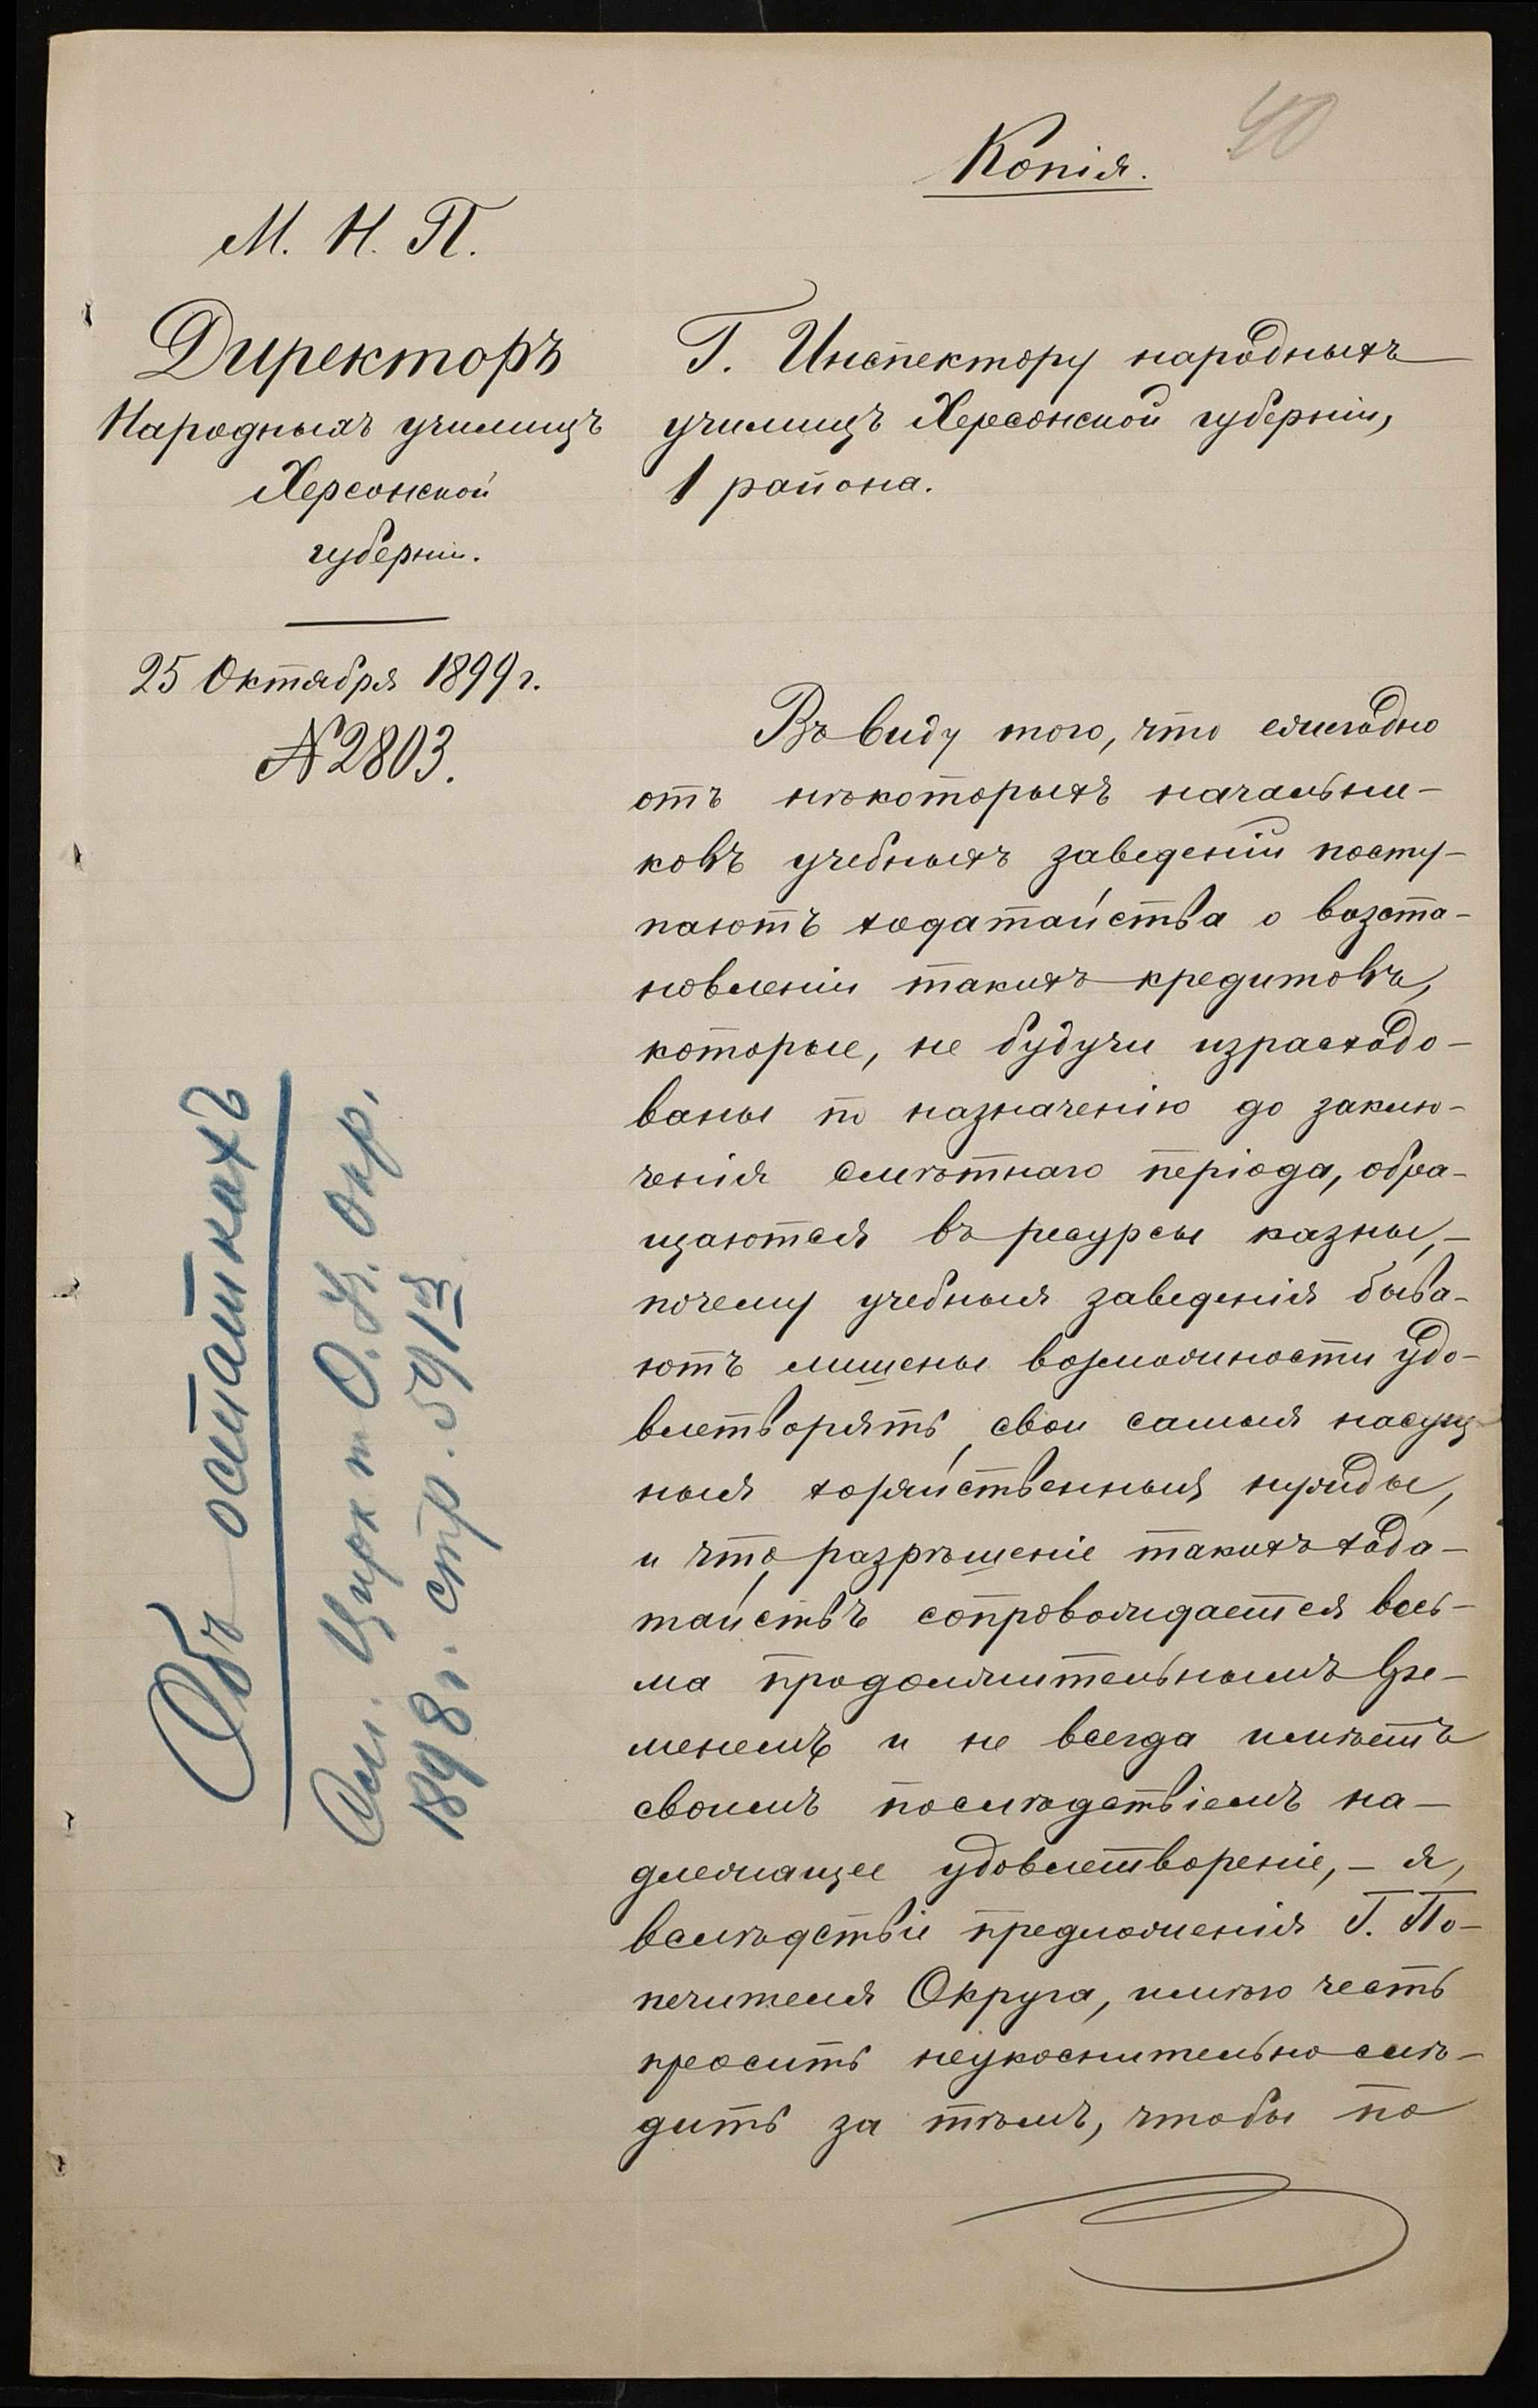 40
Копія.
М. Н. П.
Директоръ
Народныхъ училищъ
Херсонской
губерніи.
25 Октября 1899 г.
№ 2803.
Г. Инспектору народныхъ
училищъ Херсонской губерніи,
1 района.
Въ виду того, что ежегодно
отъ нѣкоторыхъ начальни-
ковъ учебныхъ заведеній посту-
паютъ ходатайства о возста-
новленіи такихъ кредитовъ,
которые, не будучи израсходо-
ваны по назначенію до заклю-
ченія смѣтнаго періода, обра-
щаются въ ресурсы казны, -
почему учебныя заведенія быва-
ютъ лишены возможности удо-
влетворять свои самыя насущ-
ныя хозяйственныя нужды,
и что разрѣшеніе такихъ хода-
тайствъ сопровождается весь-
ма продолжительнымъ вре-
менемъ и не всегда имѣетъ
своимъ послѣдствіемъ на-
длежащее удовлетвореніе, - я,
вслѣдствіе предложенія Г. По-
печителя Округа, имѣю честь
просить неукоснительно слѣ-
дить за тѣмъ, чтобы по
Объ остаткахъ
См. Цирк по О. У. Окр.
1898 г. стр. 591